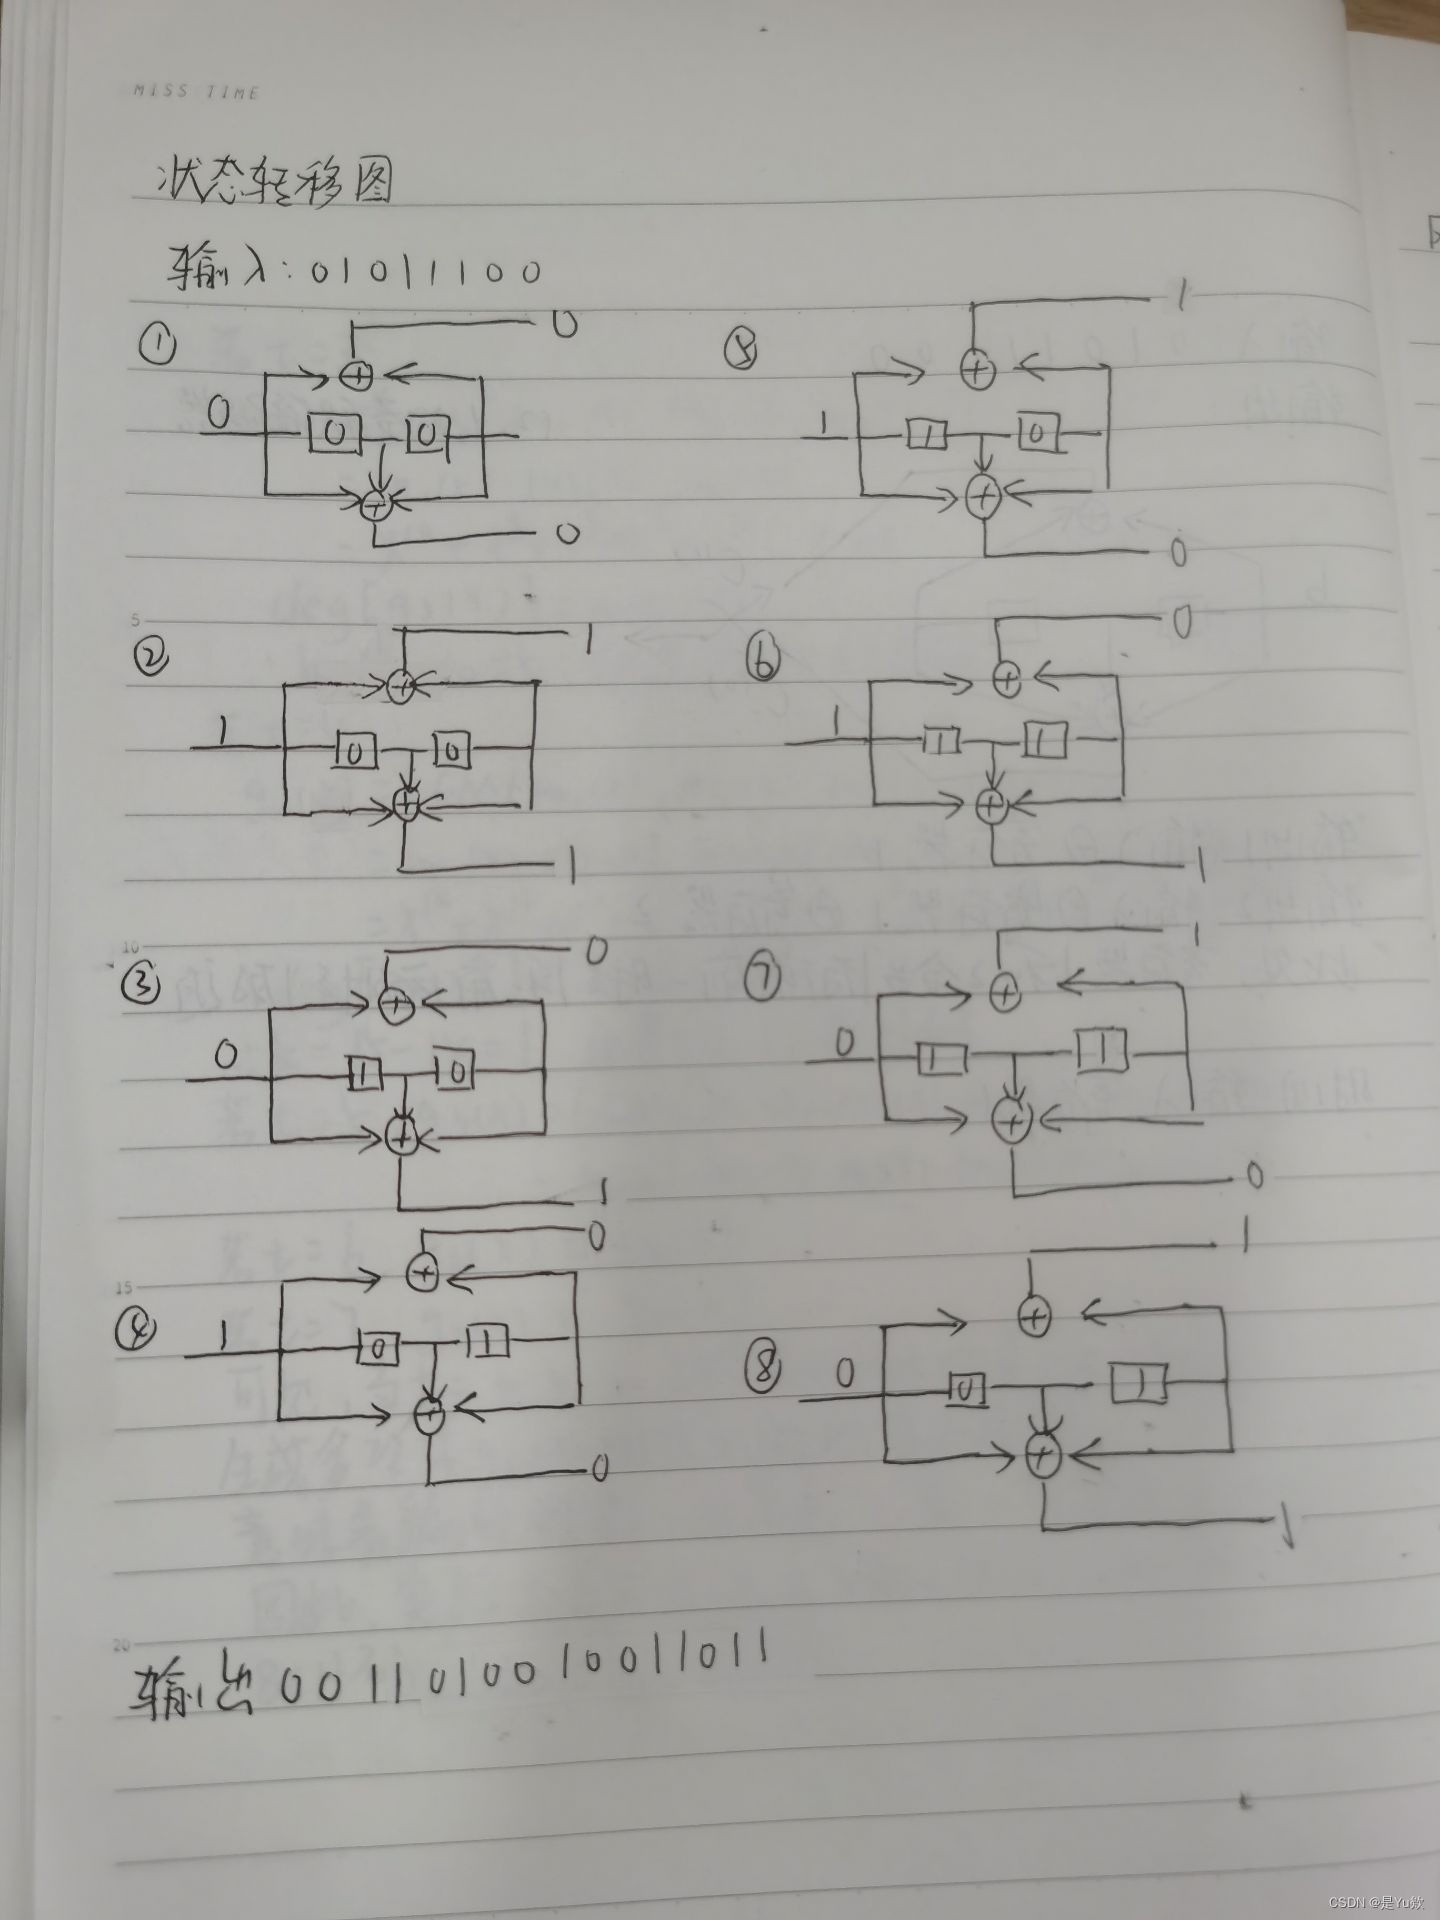 MISS TIME
状态转移图
输入:01011100
① 0 0 0 0 0
② 1 1 0 0 1
③ 0 0 1 0 1
④ 0 1 0 1 0
⑤ 1 1 1 0 0
⑥ 0 1 1 1 1
⑦ 1 0 1 1 0
⑧ 1 0 0 1 1
5
10
15
20
输出 0011010010011011
CSDN @是Yu欸